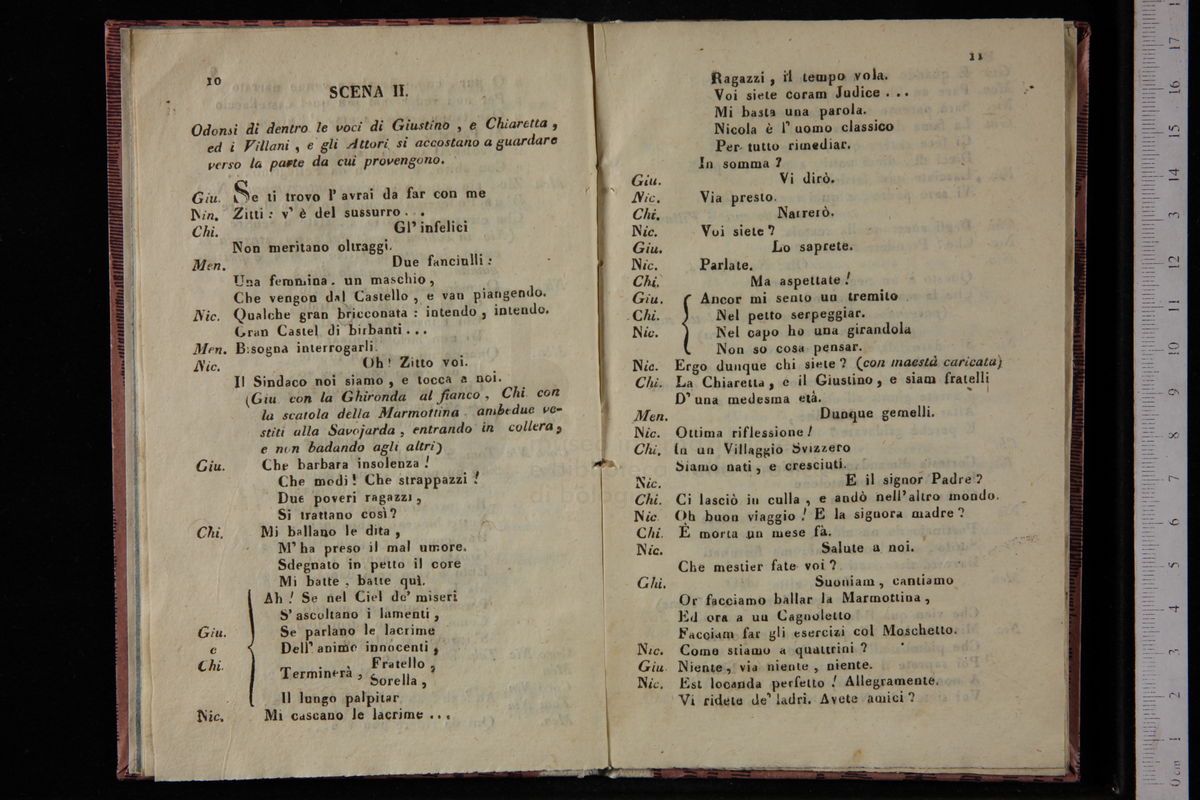 10
SCENA II.
Odonsi di dentro le voci di Giustino , e Chiaretta ,
ed i Villani , e gli Attori si accostano a guardare
verso la parte da cui provengono.
Giu. Se ti trovo l' avrai da far con me
Nin. Zitti : v' è del sussurro . . .
Chi. Gl' infelici
Non meritano oltraggi.
Men. Due fanciulli :
Una femmina , un maschio ,
Che vengon dal Castello , e van piangendo.
Nic. Qualche gran bricconata : intendo , intendo.
Gran Castel di birbanti . . .
Men. Bisogna interrogarli.
Nic. Oh ! Zitto voi.
Il Sindaco noi siamo , e tocca a noi.
(Giu con la Ghironda al fianco , Chi con
la scatola della Marmottina ambedue ve-
stiti alla Savojarda , entrando in collera ,
e non badando agli altri)
Giu. Che barbara insolenza !
Che modi ! Che strappazzi !
Due poveri ragazzi ,
Si trattano così ?
Chi. Mi ballano le dita ,
M' ha preso il mal umore.
Sdegnato in petto il core
Mi batte , batte quì.
Giu. e Chi. Ah ! Se nel Ciel de' miseri
S' ascoltano i lamenti ,
Se parlano le lacrime
Dell' anime innocenti ,
Terminerà , Fratello ,
Sorella ,
Il lungo palpitar
Nic. Mi cascano le lacrime . . .
11
Ragazzi , il tempo vola.
Voi siete coram Judice . . .
Mi basta una parola.
Nicola è l' uomo classico
Per tutto rimediar.
In somma ?
Giu. Vi dirò.
Nic. Via presto.
Chi. Narrerò.
Nic. Voi siete ?
Giu. Lo saprete.
Nic. Parlate.
Chi. Ma aspettate !
Giu. Ancor mi sento un tremito
Chi. Nel petto serpeggiar.
Nic. Nel capo ho una girandola
Non so cosa pensar.
Nic. Ergo dunque chi siete ? (con maestà caricata)
Chi. La Chiaretta , e il Giustino , e siam fratelli
D' una medesma età.
Men. Dunque gemelli.
Nic. Ottima riflessione !
Chi. In un Villaggio Svizzero
Siamo nati , e cresciuti.
Nic. E il signor Padre ?
Chi. Ci lasciò in culla , e andò nell' altro mondo.
Nic. Oh buon viaggio ! E la signora madre ?
Chi. È morta un mese fà.
Nic. Salute a noi.
Che mestier fate voi ?
Chi. Suoniam , cantiamo
Or facciamo ballar la Marmottina ,
Ed ora a un Cagnoletto
Facciam far gli esercizi col Moschetto.
Nic. Come stiamo a quattrini ?
Giu. Niente , via niente , niente.
Nic. Est locanda perfetto ! Allegramente.
Vi ridete de' ladri. Avete amici ?